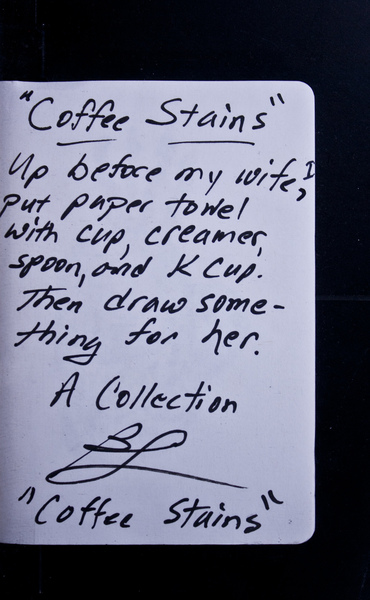 "Coffee Stains"
Up before my wife, I
put paper towel
with cup, creamer,
spoon, and K cup.
Then draw some-
thing for her.
A Collection
"Coffee Stains"